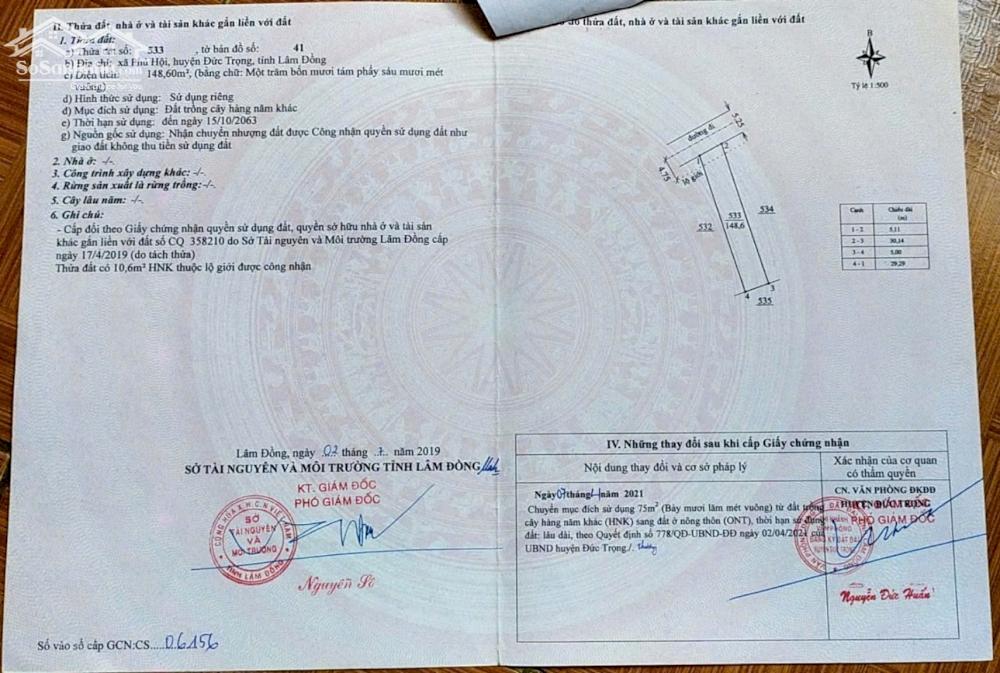 II. Thửa đất, nhà ở và tài sản khác gắn liền với đất
1. Thửa đất:
a) Thửa đất số: 533 , tờ bản đồ số: 41
b) Địa chỉ: xã Phú Hội, huyện Đức Trọng, tỉnh Lâm Đồng
c) Diện tích: 148,60m², (bằng chữ: Một trăm bốn mươi tám phẩy sáu mươi mét
vuông)
d) Hình thức sử dụng: Sử dụng riêng
đ) Mục đích sử dụng: Đất trồng cây hàng năm khác
e) Thời hạn sử dụng: đến ngày 15/10/2063
g) Nguồn gốc sử dụng: Nhận chuyển nhượng đất được Công nhận quyền sử dụng đất như
giao đất không thu tiền sử dụng đất
2. Nhà ở: -/-.
3. Công trình xây dựng khác: -/-.
4. Rừng sản xuất là rừng trồng:-/-.
5. Cây lâu năm: -/-.
6. Ghi chú:
- Cấp đổi theo Giấy chứng nhận quyền sử dụng đất, quyền sở hữu nhà ở và tài sản
khác gắn liền với đất số CQ 358210 do Sở Tài nguyên và Môi trường Lâm Đồng cấp
ngày 17/4/2019 (do tách thửa)
Thửa đất có 10,6m² HNK thuộc lộ giới được công nhận
Lâm Đồng, ngày 02 tháng 7 năm 2019
SỞ TÀI NGUYÊN VÀ MÔI TRƯỜNG TỈNH LÂM ĐỒNG
KT. GIÁM ĐỐC
PHÓ GIÁM ĐỐC
CỘNG HÒA X.H.C.N VIỆT NAM
SỞ
TÀI NGUYÊN
VÀ
MÔI TRƯỜNG
TỈNH LÂM ĐỒNG
Nguyễn Sê
Số vào sổ cấp GCN:CS.....06156
đồ thửa đất, nhà ở và tài sản khác gắn liền với đất
B
Tỷ lệ 1:500
5.25
đường đi
4.75
lộ giới
1
2
532
533
148,6
534
3
4
535
Cạnh Chiều dài
(m)
1 - 2 5,11
2 - 3 30,14
3 - 4 5,00
4 - 1 29,29
IV. Những thay đổi sau khi cấp Giấy chứng nhận
Nội dung thay đổi và cơ sở pháp lý
Xác nhận của cơ quan
có thẩm quyền
Ngày 07 tháng 4 năm 2021
Chuyển mục đích sử dụng 75m² (Bảy mươi lăm mét vuông) từ đất trồng
cây hàng năm khác (HNK) sang đất ở nông thôn (ONT), thời hạn sử dụng
đất: lâu dài, theo Quyết định số 778/QĐ-UBND-ĐĐ ngày 02/04/2021 của
UBND huyện Đức Trọng./.
CN. VĂN PHÒNG ĐKĐĐ
HUYỆN ĐỨC TRỌNG
PHÓ GIÁM ĐỐC
Nguyễn Đức Huấn